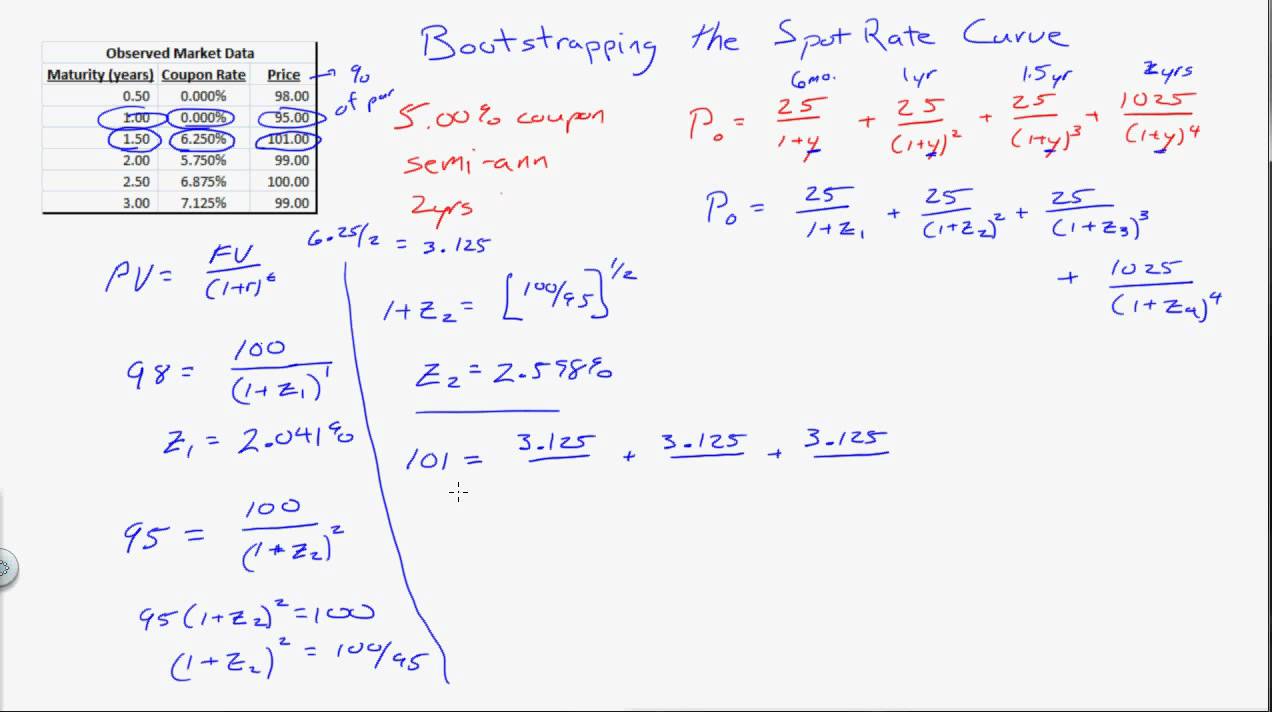 Bootstrapping the Spot Rate Curve
Observed Market Data
Maturity (years) Coupon Rate Price → % of par
0.50 0.000% 98.00
1.00 0.000% 95.00
1.50 6.250% 101.00
2.00 5.750% 99.00
2.50 6.875% 100.00
3.00 7.125% 99.00
5.00% coupon
semi-ann
2yrs
6mo. 1yr 1.5yr 2yrs
P₀ = 25/(1+y) + 25/(1+y)² + 25/(1+y)³ + 1025/(1+y)⁴
P₀ = 25/(1+Z₁) + 25/(1+Z₂)² + 25/(1+Z₃)³
+ 1025/(1+Z₄)⁴
6.25/2 = 3.125
PV = FV/(1+r)^t
98 = 100/(1+Z₁)¹
Z₁ = 2.041%
95 = 100/(1+Z₂)²
95(1+Z₂)² = 100
(1+Z₂)² = 100/95
1+Z₂ = [100/95]^1/2
Z₂ = 2.598%
101 = 3.125 + 3.125 + 3.125